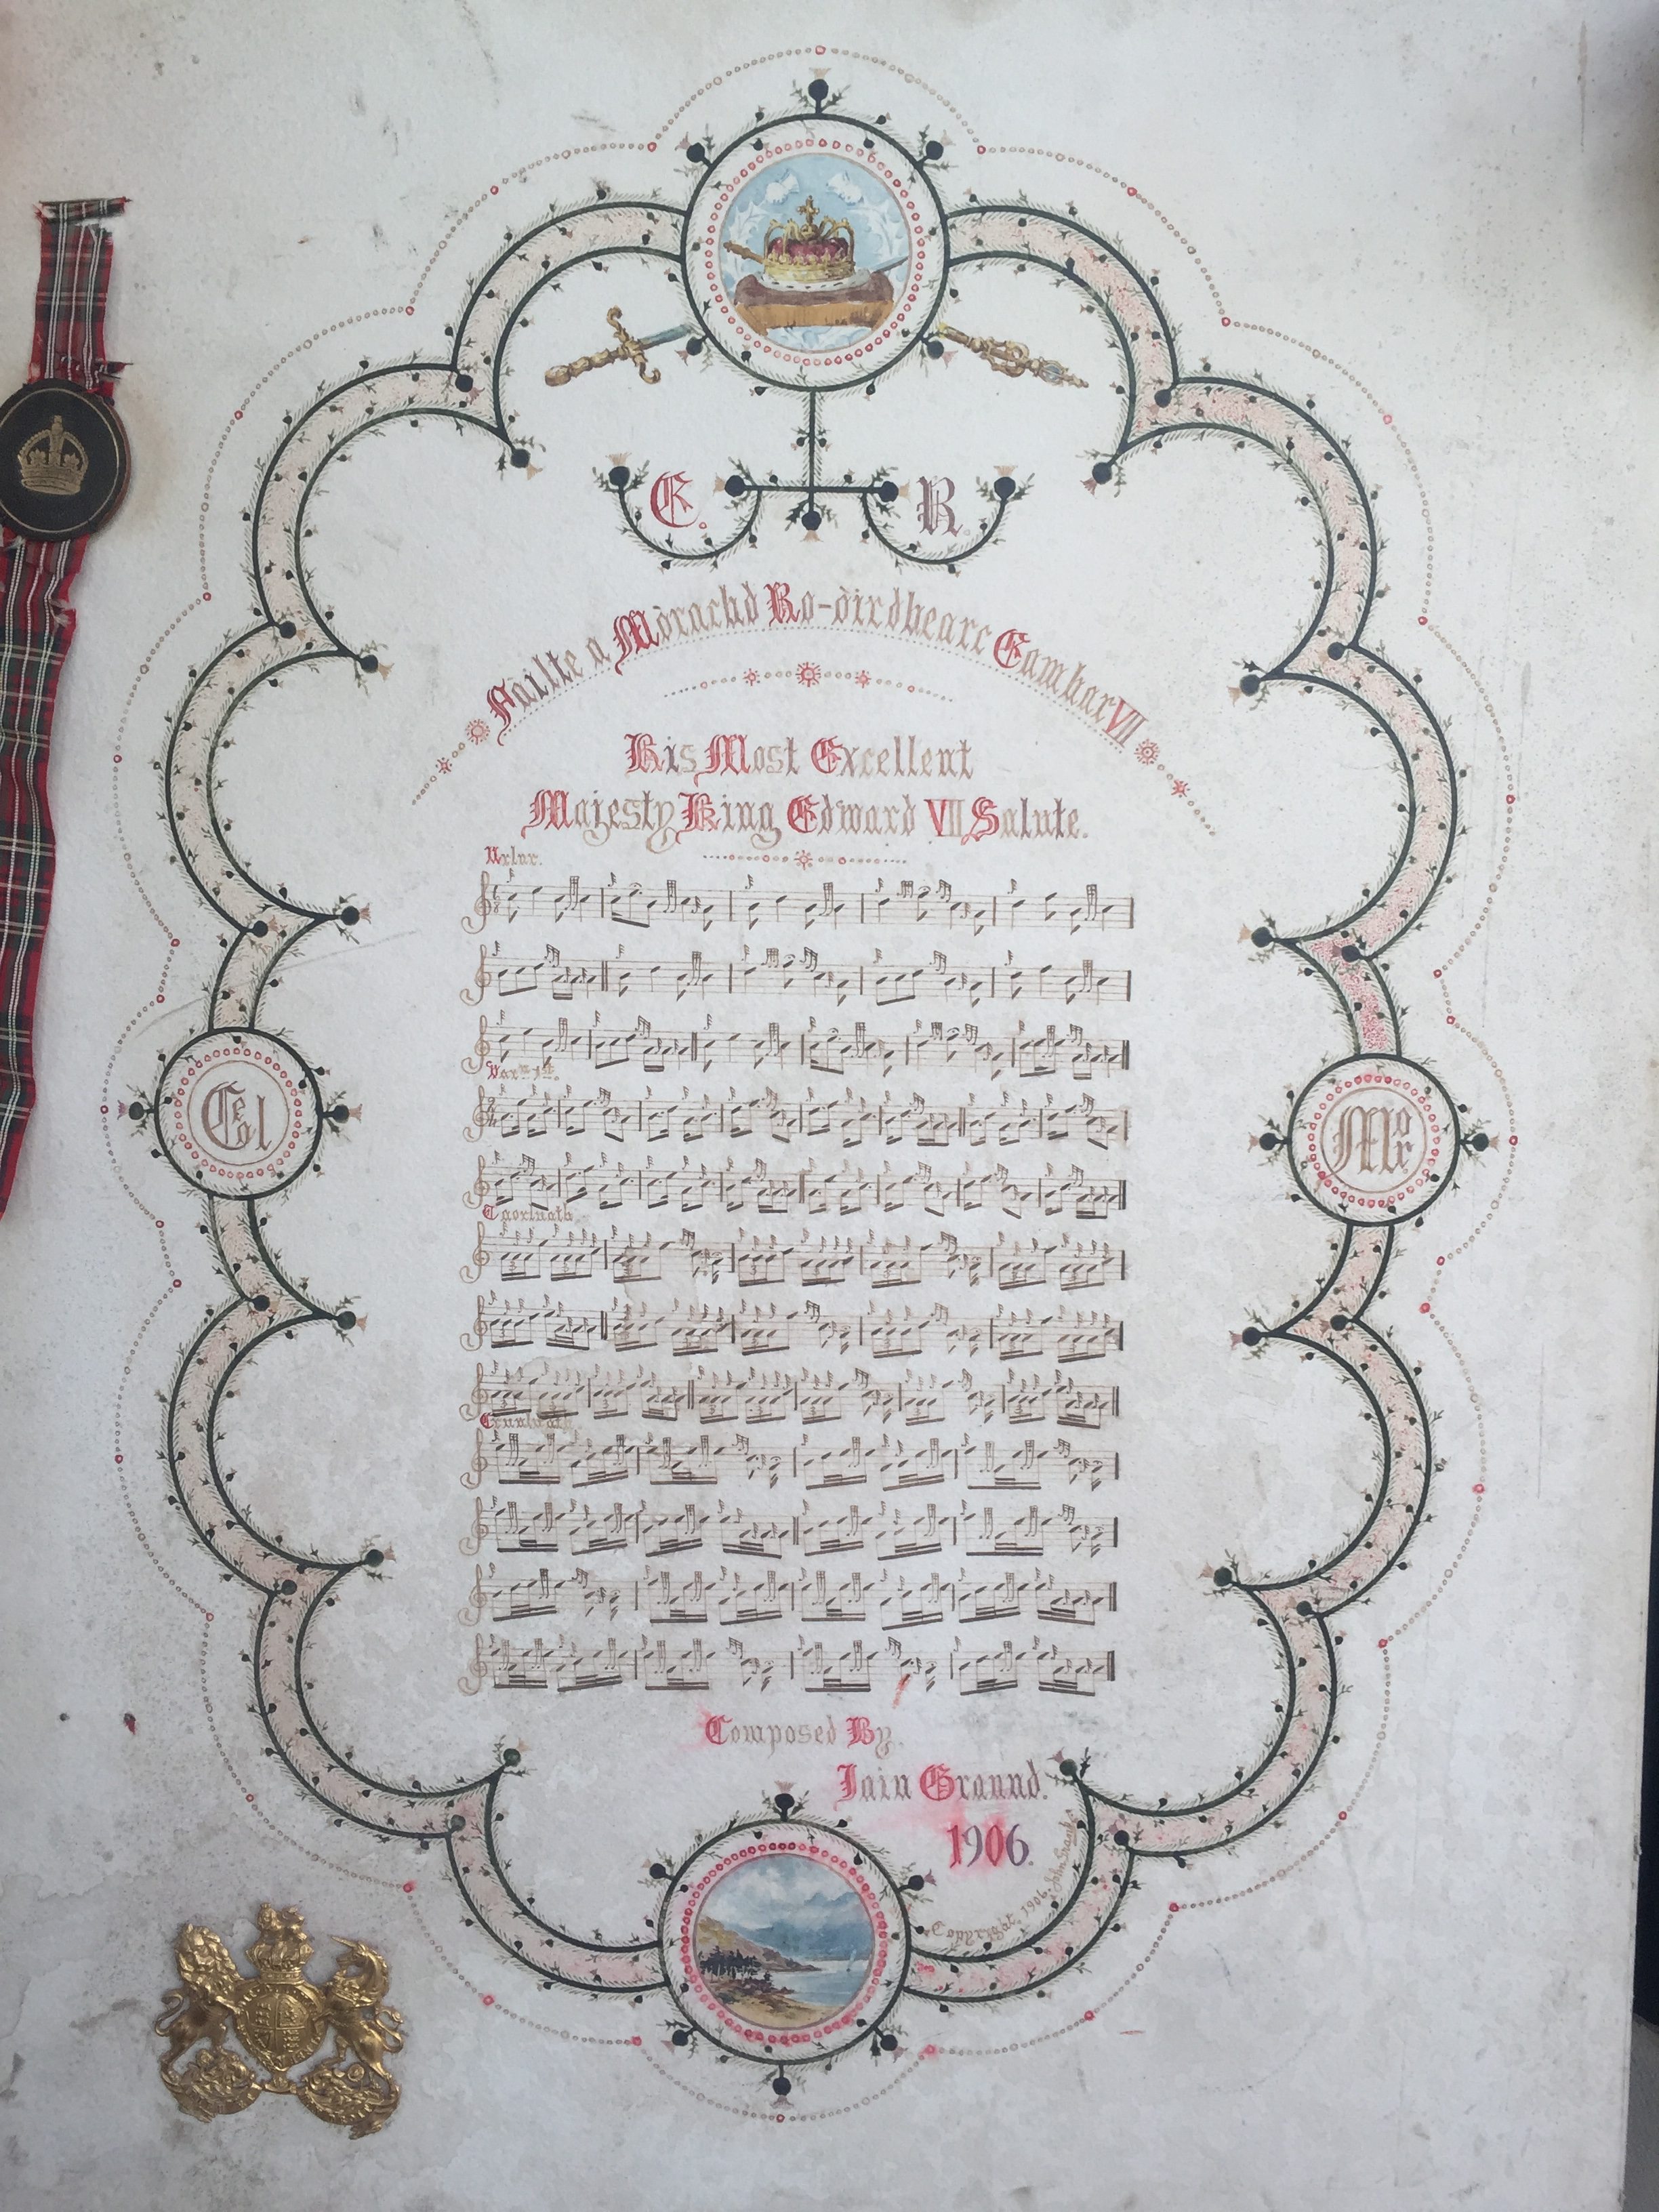 E. R.
Failte a Mòrachd Ro-òirdhearc Eamhar VII
His Most Excellent
Majesty King Edward VII Salute.
Urlar.
Varn 1st.
Ceol
Mor
Taorluath.
Crunluath.
Composed By.
Iain Graund.
1906.
Copyright. 1906.